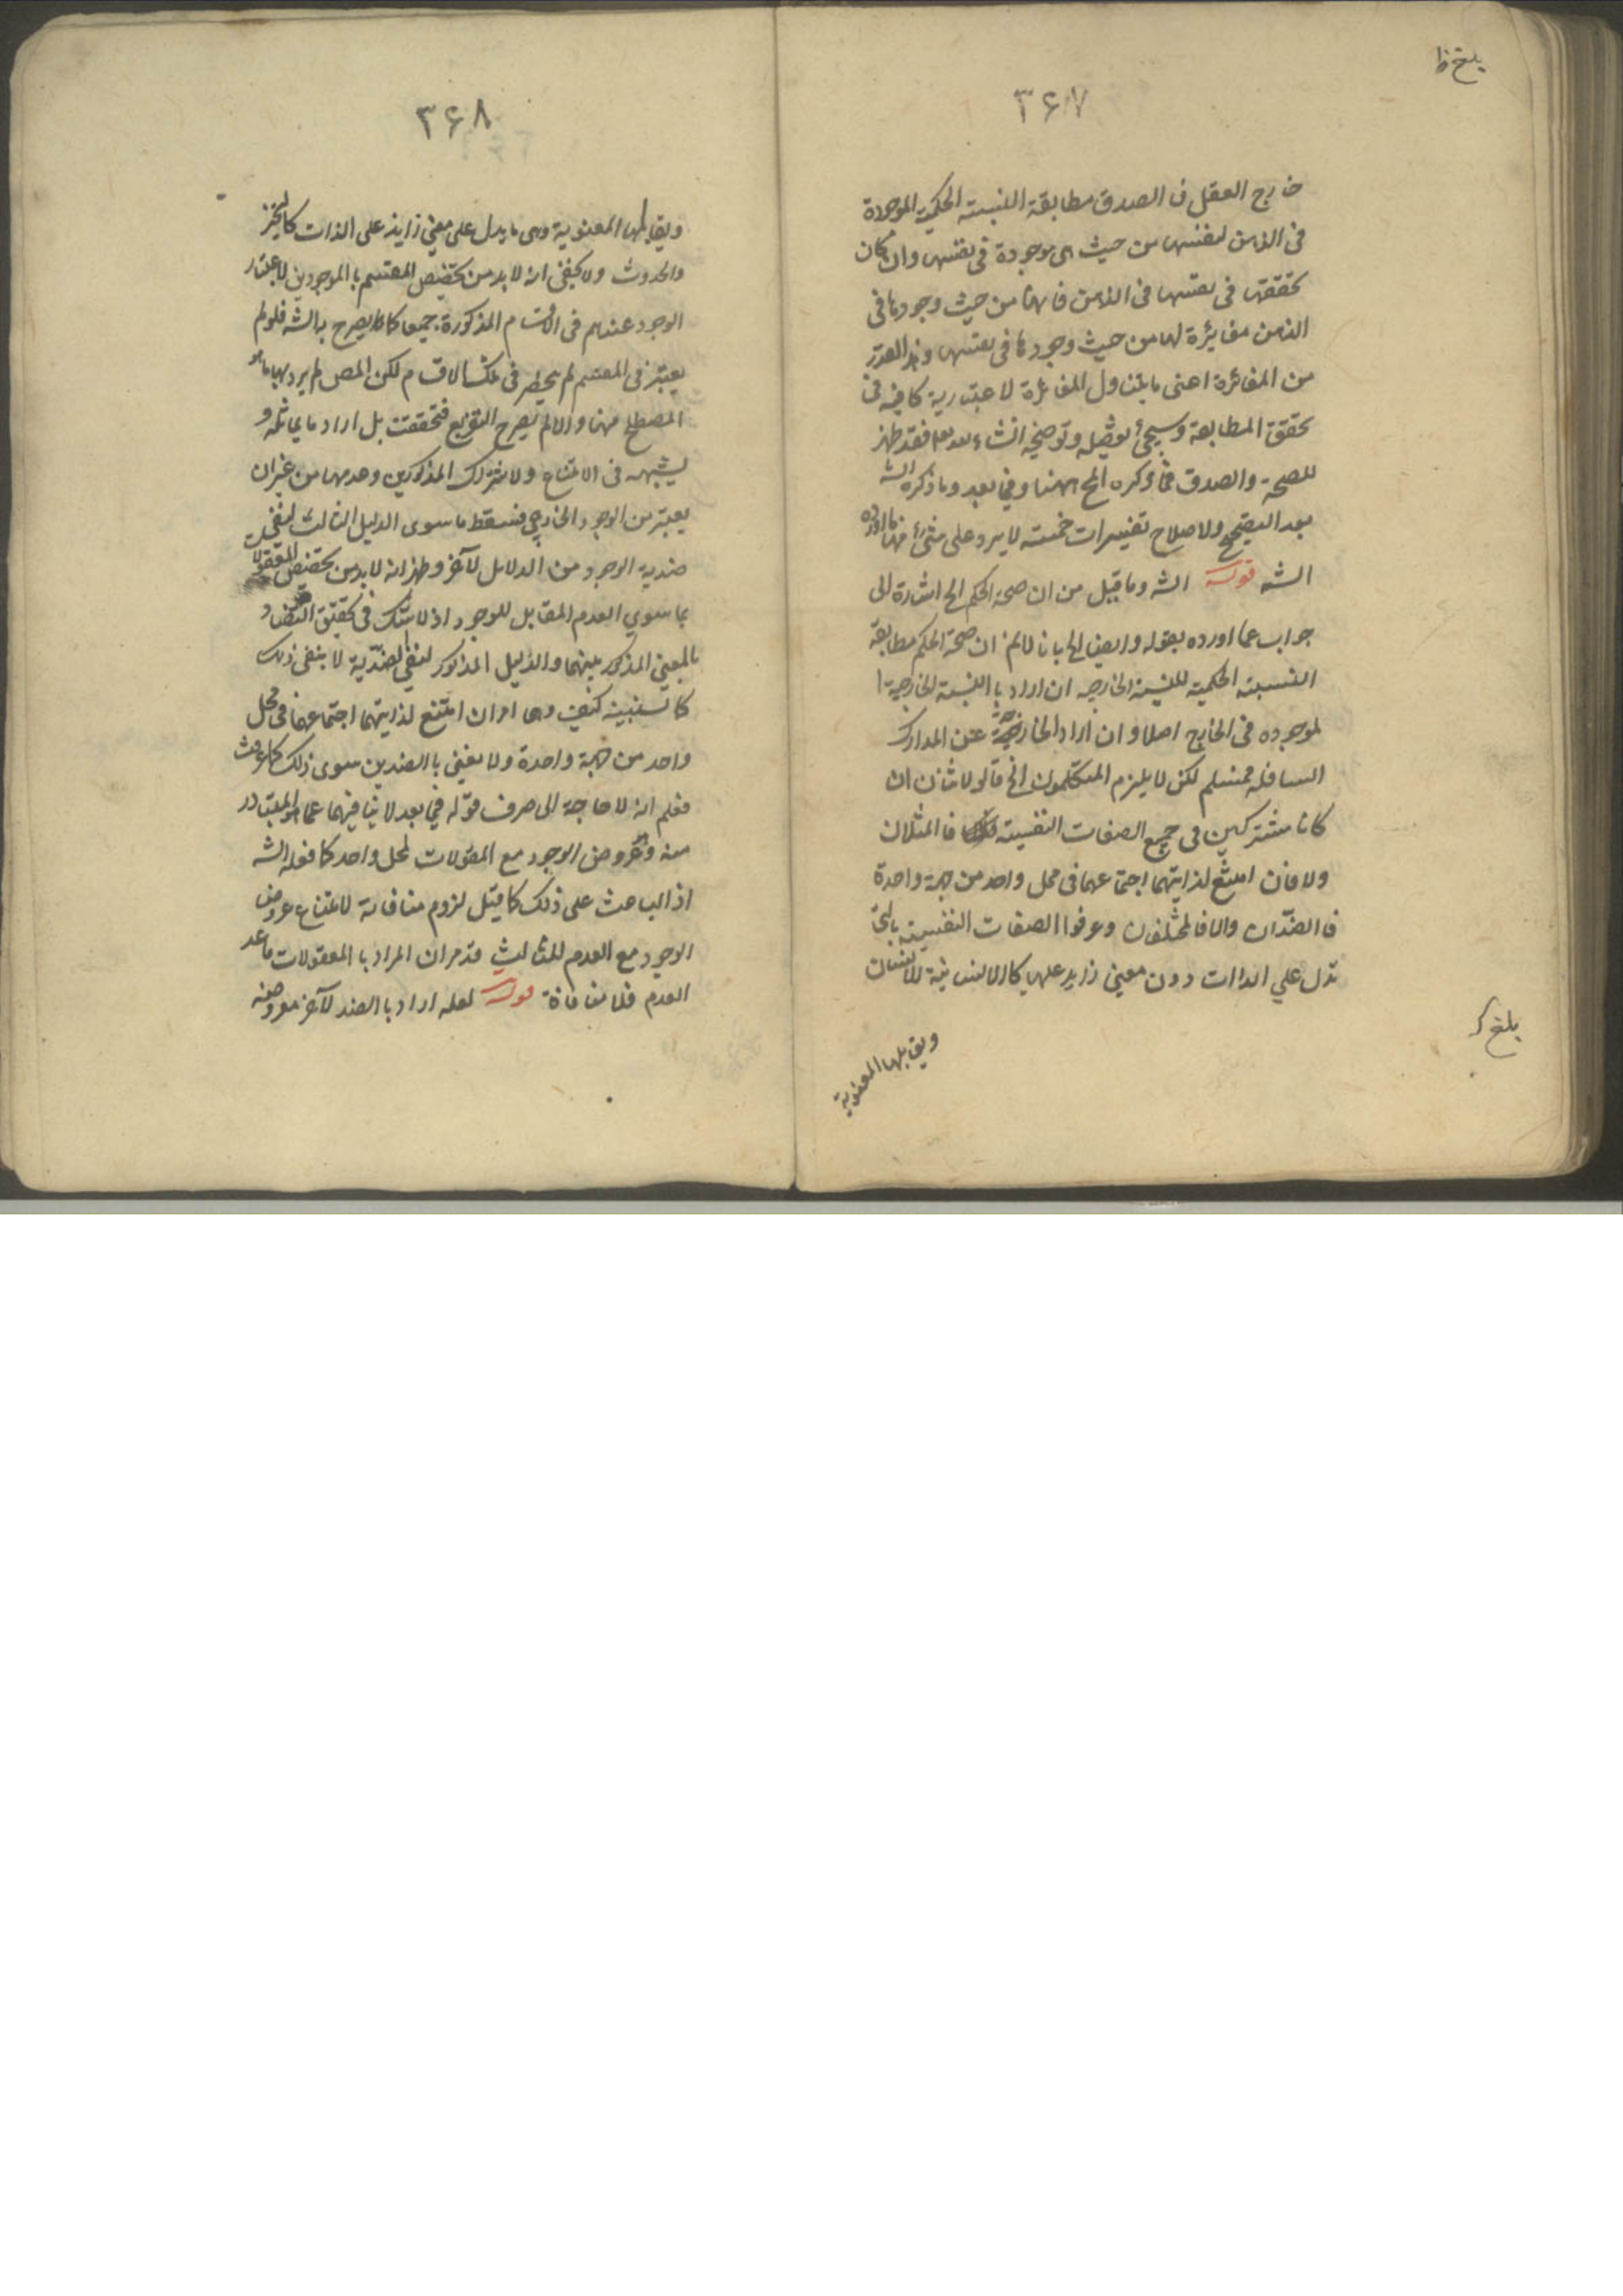 بلغ
۳۶۷
خارج العقل فالصدق مطابقة النسبته الحكمية الموجودة
فى الذهن لنفسها من حيث هى موجودة فى نفسها وان كان
تحققها فى نفسها فى الذهن فانها من حيث وجودها فى
الذهن مغايرة لها من حيث وجودها فى نفسها وهذا القدر
من المغائرة اعنى ما يتناول المغائرة لاعتبارية كافية فى
تحقق المطابقة وسيجئ تفصيله وتوضيحه انشاء فقد ظهر
للصحة والصدق فما ذكره الخ ههنا وفيما بعد وما ذكره الشه
بعد التصحيح ولاصلاح تفسيرات خمسته لا يرد على شئ منها ما اورده
الشه قوله الشه وما قيل من ان صحة الحكم الخ اشارة الى
جواب عما اورده بقوله وايضا الخ بانا لانم ان صحة الحكم مطابقة
النسبته الحكمية للنسبة الخارجيه ان اراد باالنسبة الخارجية ا
لموجوده فى الخارج اصلا وان اراد الخارجة عن المدارك
السافله فمسلم لكن لا يلزم المتكلمون الخ قالو لاثنان ان
كانا مشتركين فى جميع الصفات النفسيته فاالمثلان
ولا فان امتنع لذاتيهما اجتماعهما فى محل واحد من جهة واحدة
فاالضدّان والا فالمختلفان وعرفوا الصفات النفسيته بالتى
تدل على الذات دون معنى زايد عليها كالانسانية للانسان
ويقابلها المعنوية
بلغ
۳۶۸
ويقابلها المعنوية وهى ما يدل على معنى زايد على الذات كالتحيز
والحدوث ولا يخفى انه لا بد من تخصيص المقسم باالموجودين لاعتبار
الوجود عندهم فى الاقسام المذكورة جميعا كما يصرح به الشه فلو لم
يعتبر فى المقسم لم ينحصر فى تلك الاقسام لكن المص لم يرد بها ما هو
المصطلح ههنا والا لم يصح التفريع فتحققت بل اراد ما يماثله و
يشبهه فى الامتناع ولاشتراك المذكورين وعدمهما من غير ان
يعتبر من الوجود الخارجى فسقط ما سوى الدليل الثالث لنفى
ضدية الوجود من الدلايل لآخر وظهر انه لا بد من تخصيص المعقولات
بما سوى العدم المقابل للوجود اذ لا شك فى تحقق التضاد
بالمعنى المذكور بينهما والدليل المذكور لنفى الضدّية لا ينفى ذلك
كا لسنبينه كيف وهما امران امتنع لذاتيهما اجتماعهما فى محل
واحد من جهة واحدة ولا نعنى باالضدين سوى ذلك كما عرفت
فعلم انه لا حاجة الى صرف قوله فيما بعد لا ينافيهما عما هو المتبادر
منه وهو عروض الوجود مع المقولات لمحل واحد كما فعله الشه
اذ الباعث على ذلك كما قيل لزوم منافاته لامتناع عروض
الوجود مع العدم للثالث وقد مر ان المراد باالمعقولات ما عد
العدم فلا منافاة قوله لعله اراد باالضد لآخر معروضه